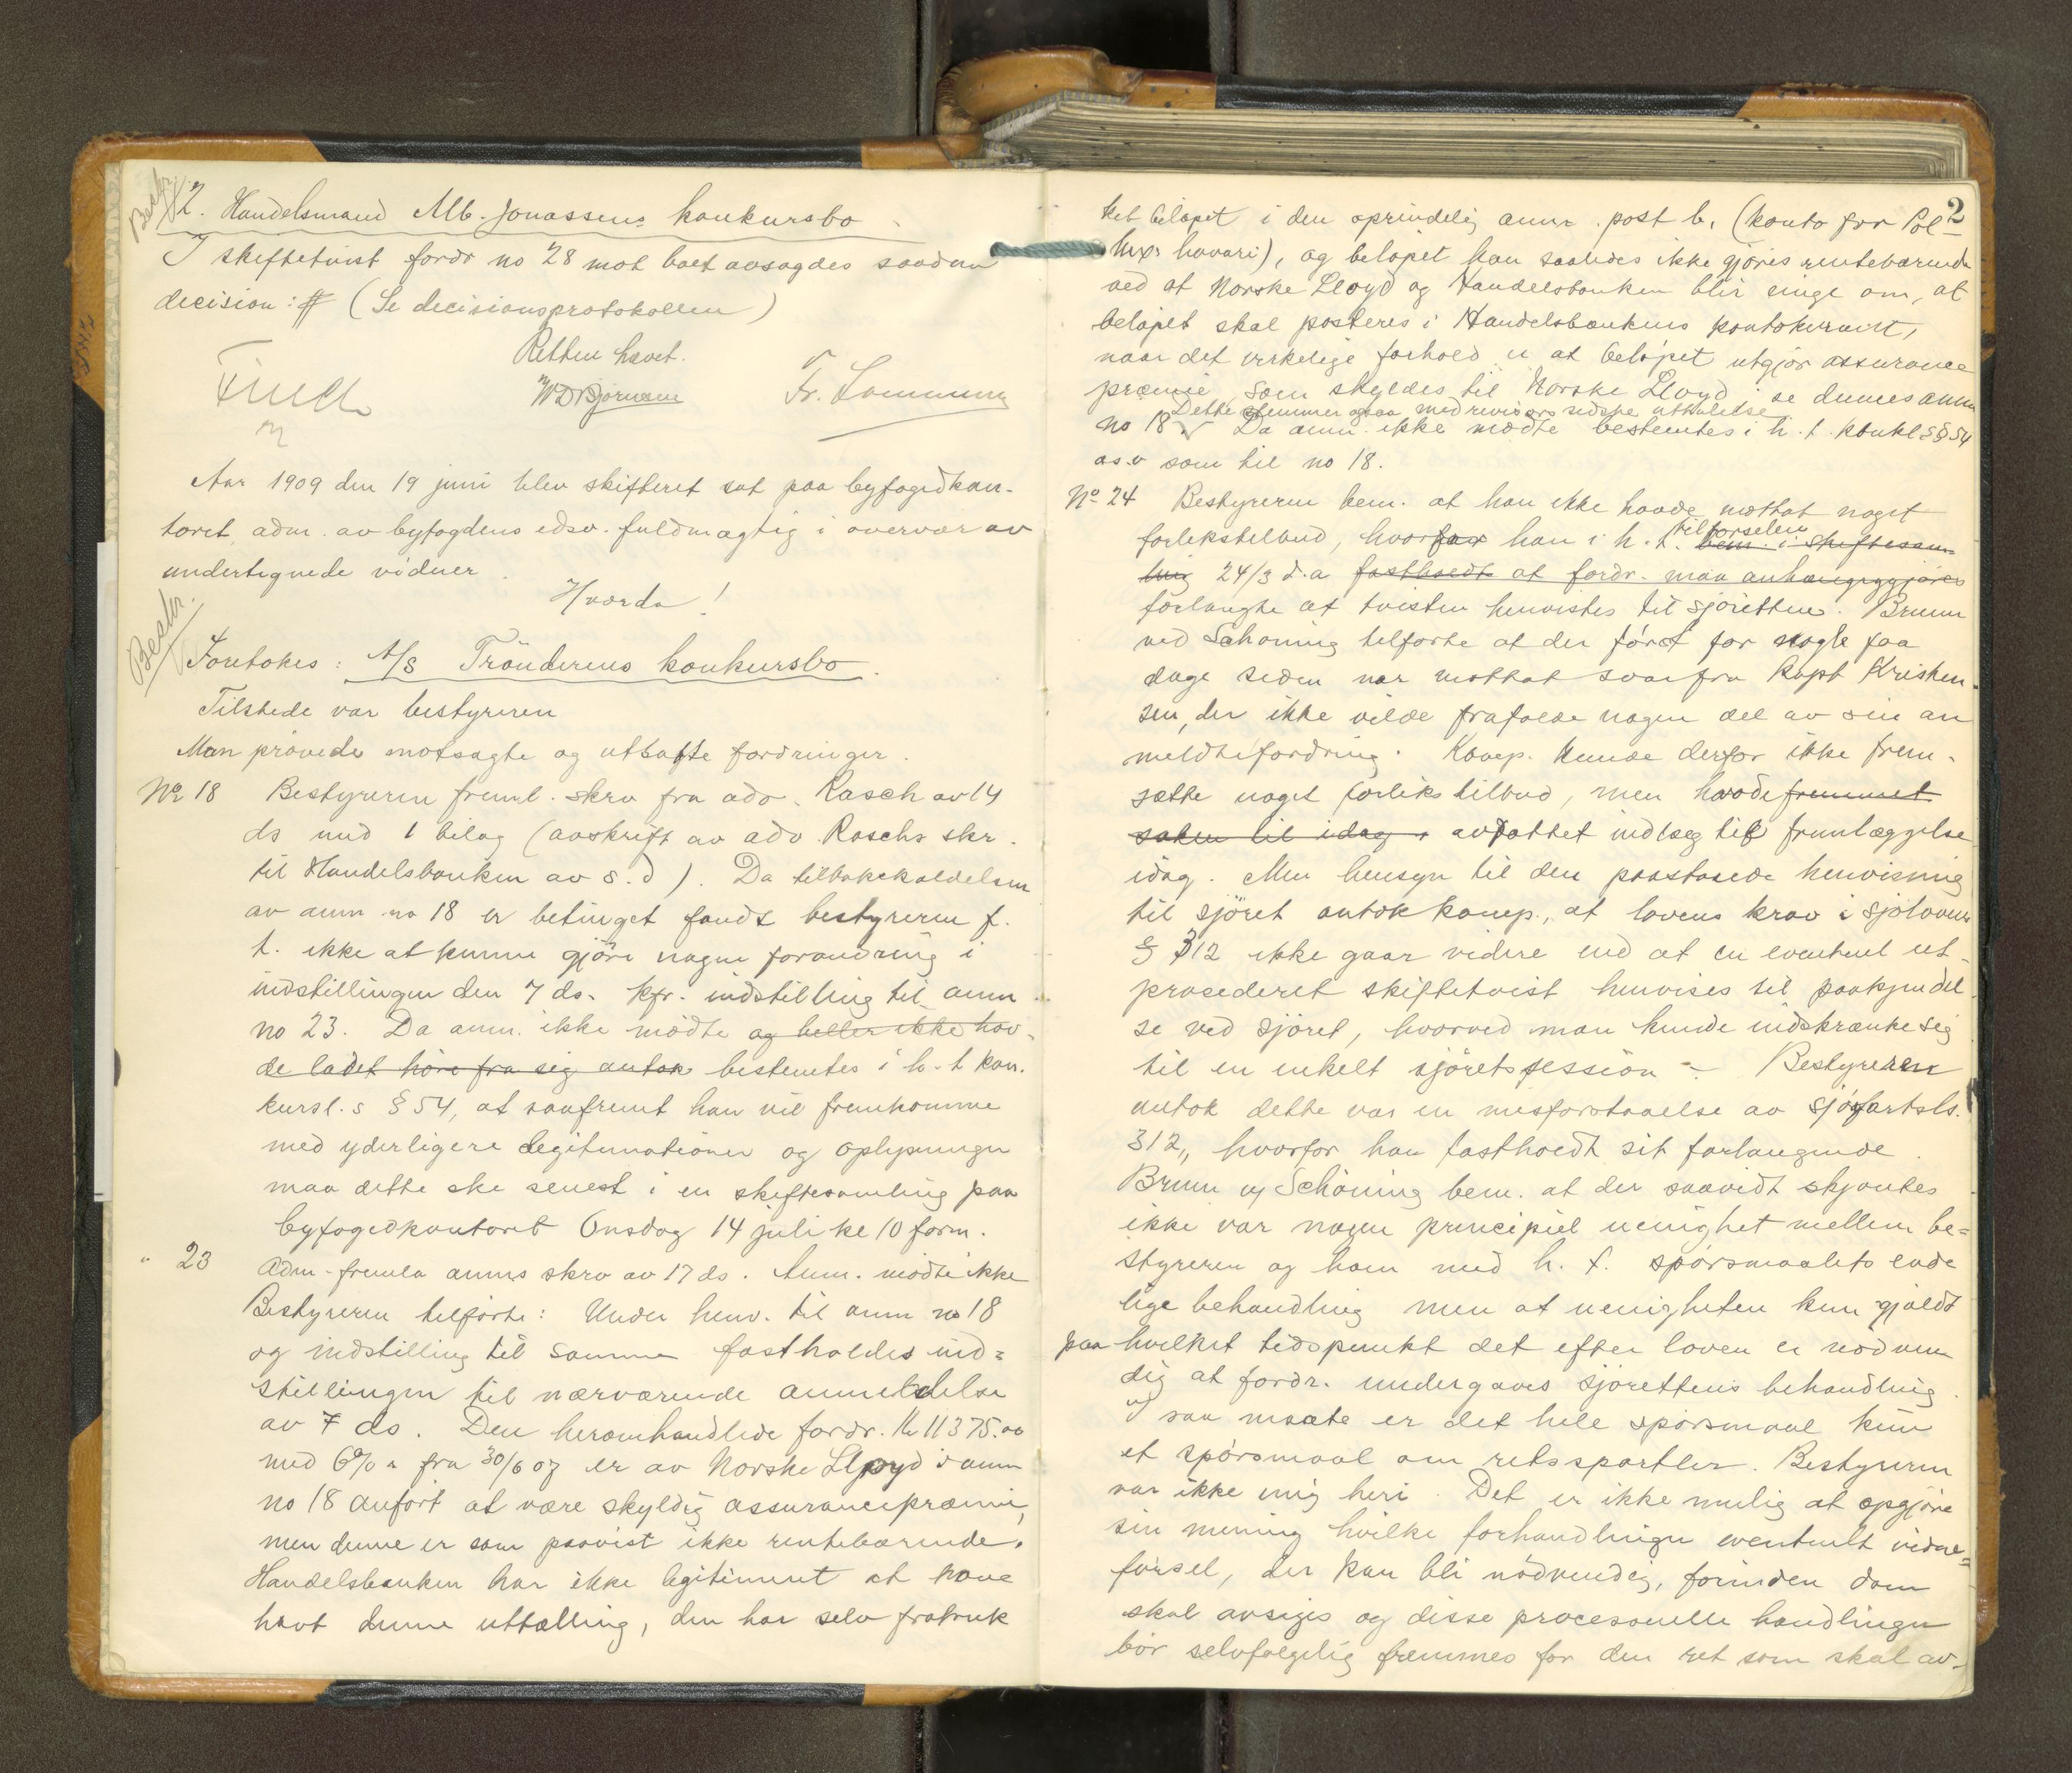 Beskr.
2. Handelsmand Alb. Jonassens konkursbo
I skiftetvist fordr no 28 mot boet avsagdes saadan
decision: # (Se decisionsprotokollen)
Retten hævet.
W D Bjørnsen
Aar 1909 den 19 juni blev skifteret sat paa byfogedkon-
toret adm. av byfogdens edsv. fuldmægtig i overvær av
undertegnede vidner
Hvorda!
Beskr.
Foretokes: A/S Trönderens konkursbo.
Tilstede var bestyreren
Man prövede motsagte og utsatte fordringer.
No 18 Bestyreren freml. skrv fra adv. Rasch av 14
ds med 1 bilag (avskrift av adv Raschs skr.
til Handelsbanken av s.d). Da tilbakekaldelsen
av anm no 18 er betinget fandt bestyreren f.
t. ikke at kunne gjöre nogen forandring i
indstillingen den 7 ds. kfr. indstilling til anm
no 23. Da anm. ikke mödte og heller ikke hav-
de ladet höre fra sig antok bestemtes i h. t kon.
kursl.s § 54, at saafremt han vil fremkomme
med yderligere legitimationer og oplysninger
maa dette ske senest i en skiftesamling paa
byfogedkontoret Onsdag 14 juli kl 10 form.
" 23 Adm. fremla anms skrv av 17 ds. Anm. mödte ikke
Bestyreren tilförte: Under henv. til anm no 18
og indstilling til samme fastholdes ind=
stillingen til nærværende anmeldelse
av 7 ds. Den heromhandlede fordr. Kr 11375.00
med 6% a fra 30/6 07 er av Norske Lloyd i anm
no 18 anfört at være skyldig assurancepræmie,
men denne er som paavist ikke rentebærende.
Handelsbanken har ikke legitimert at have
havt denne uttælling, den har selv fratruk
2
ket belöpet i den oprindelig anm. post b, (konto for Pol-
lux's havari), og belöpet kan saaledes ikke gjöres rentebærende
ved at Norske Lloyd og Handelsbanken blir enige om, at
belöpet skal posteres i Handelsbankens kontokurant,
naar det virkelige forhold er at belöpet utgjör assurance
præmie, som skyldes til Norske Lloyd, se dennes anm
Dette stemmer ogsaa med revisors sidste uttalelse
no 18. Da anm. ikke mödte bestemtes i h. t. konkl s § 54
as.v som til no 18.
No 24 Bestyreren bem. at han ikke havde mottat noget
forlikstilbud, hvorfor han i h. t. tilförselen bem. i skiftesam
ling 24/3 d.a fastholdt at fordr. maa anhængiggjöres
forlangte at tvisten henvistes til sjöretten. Bruun
ved Schöning tilförte at der först for nogle faa
dage siden var mottat svar fra Kapt Kristen.
sen, der ikke vilde frafalde nogen del av sin an
meldte fordring. Komp. kunde derfor ikke frem-
sætte noget forliks tilbud, men havde fremmet
saken til idag avfattet indlæg til fremlæggelse
idag. Men hensyn til den paastaaede henvisning
til sjöret antok komp., at lovens krav i sjölovens
§ 312 ikke gaar videre end at en eventuel ut-
procederet skiftetvist henvises til paakjendel
se ved sjöret, hvorved man kunde indskrænke sig
til en enkelt sjöretssession -. Bestyreren
antok dette var en misforstaaelse av sjöfartsls.
312, hvorfor han fastholdt sit forlangende.
Bruun og Schöning bem. at der saavidt skjöntes
ikke var nogen principiel uenighet mellem be=
styreren og ham med h. t. spörsmaalets ende
lige behandling men at uenigheten kun gjaldt
paa hvilket tidspunkt det efter loven er nödven
dig at fordr. undergaves sjörettens behandling.
og saa maate er det hele spörsmaal kun
et spörsmaal om retssportler. Bestyreren
var ikke enig heri. Det er ikke mulig at opgjöre
sin mening hvilke forhandlinger eventuelt vidne=
försel, der kan bli nödvendig, forinden dom
skal avsiges og disse processuelle handlinger
bör selvfölgelig fremmes for den ret som skal av-